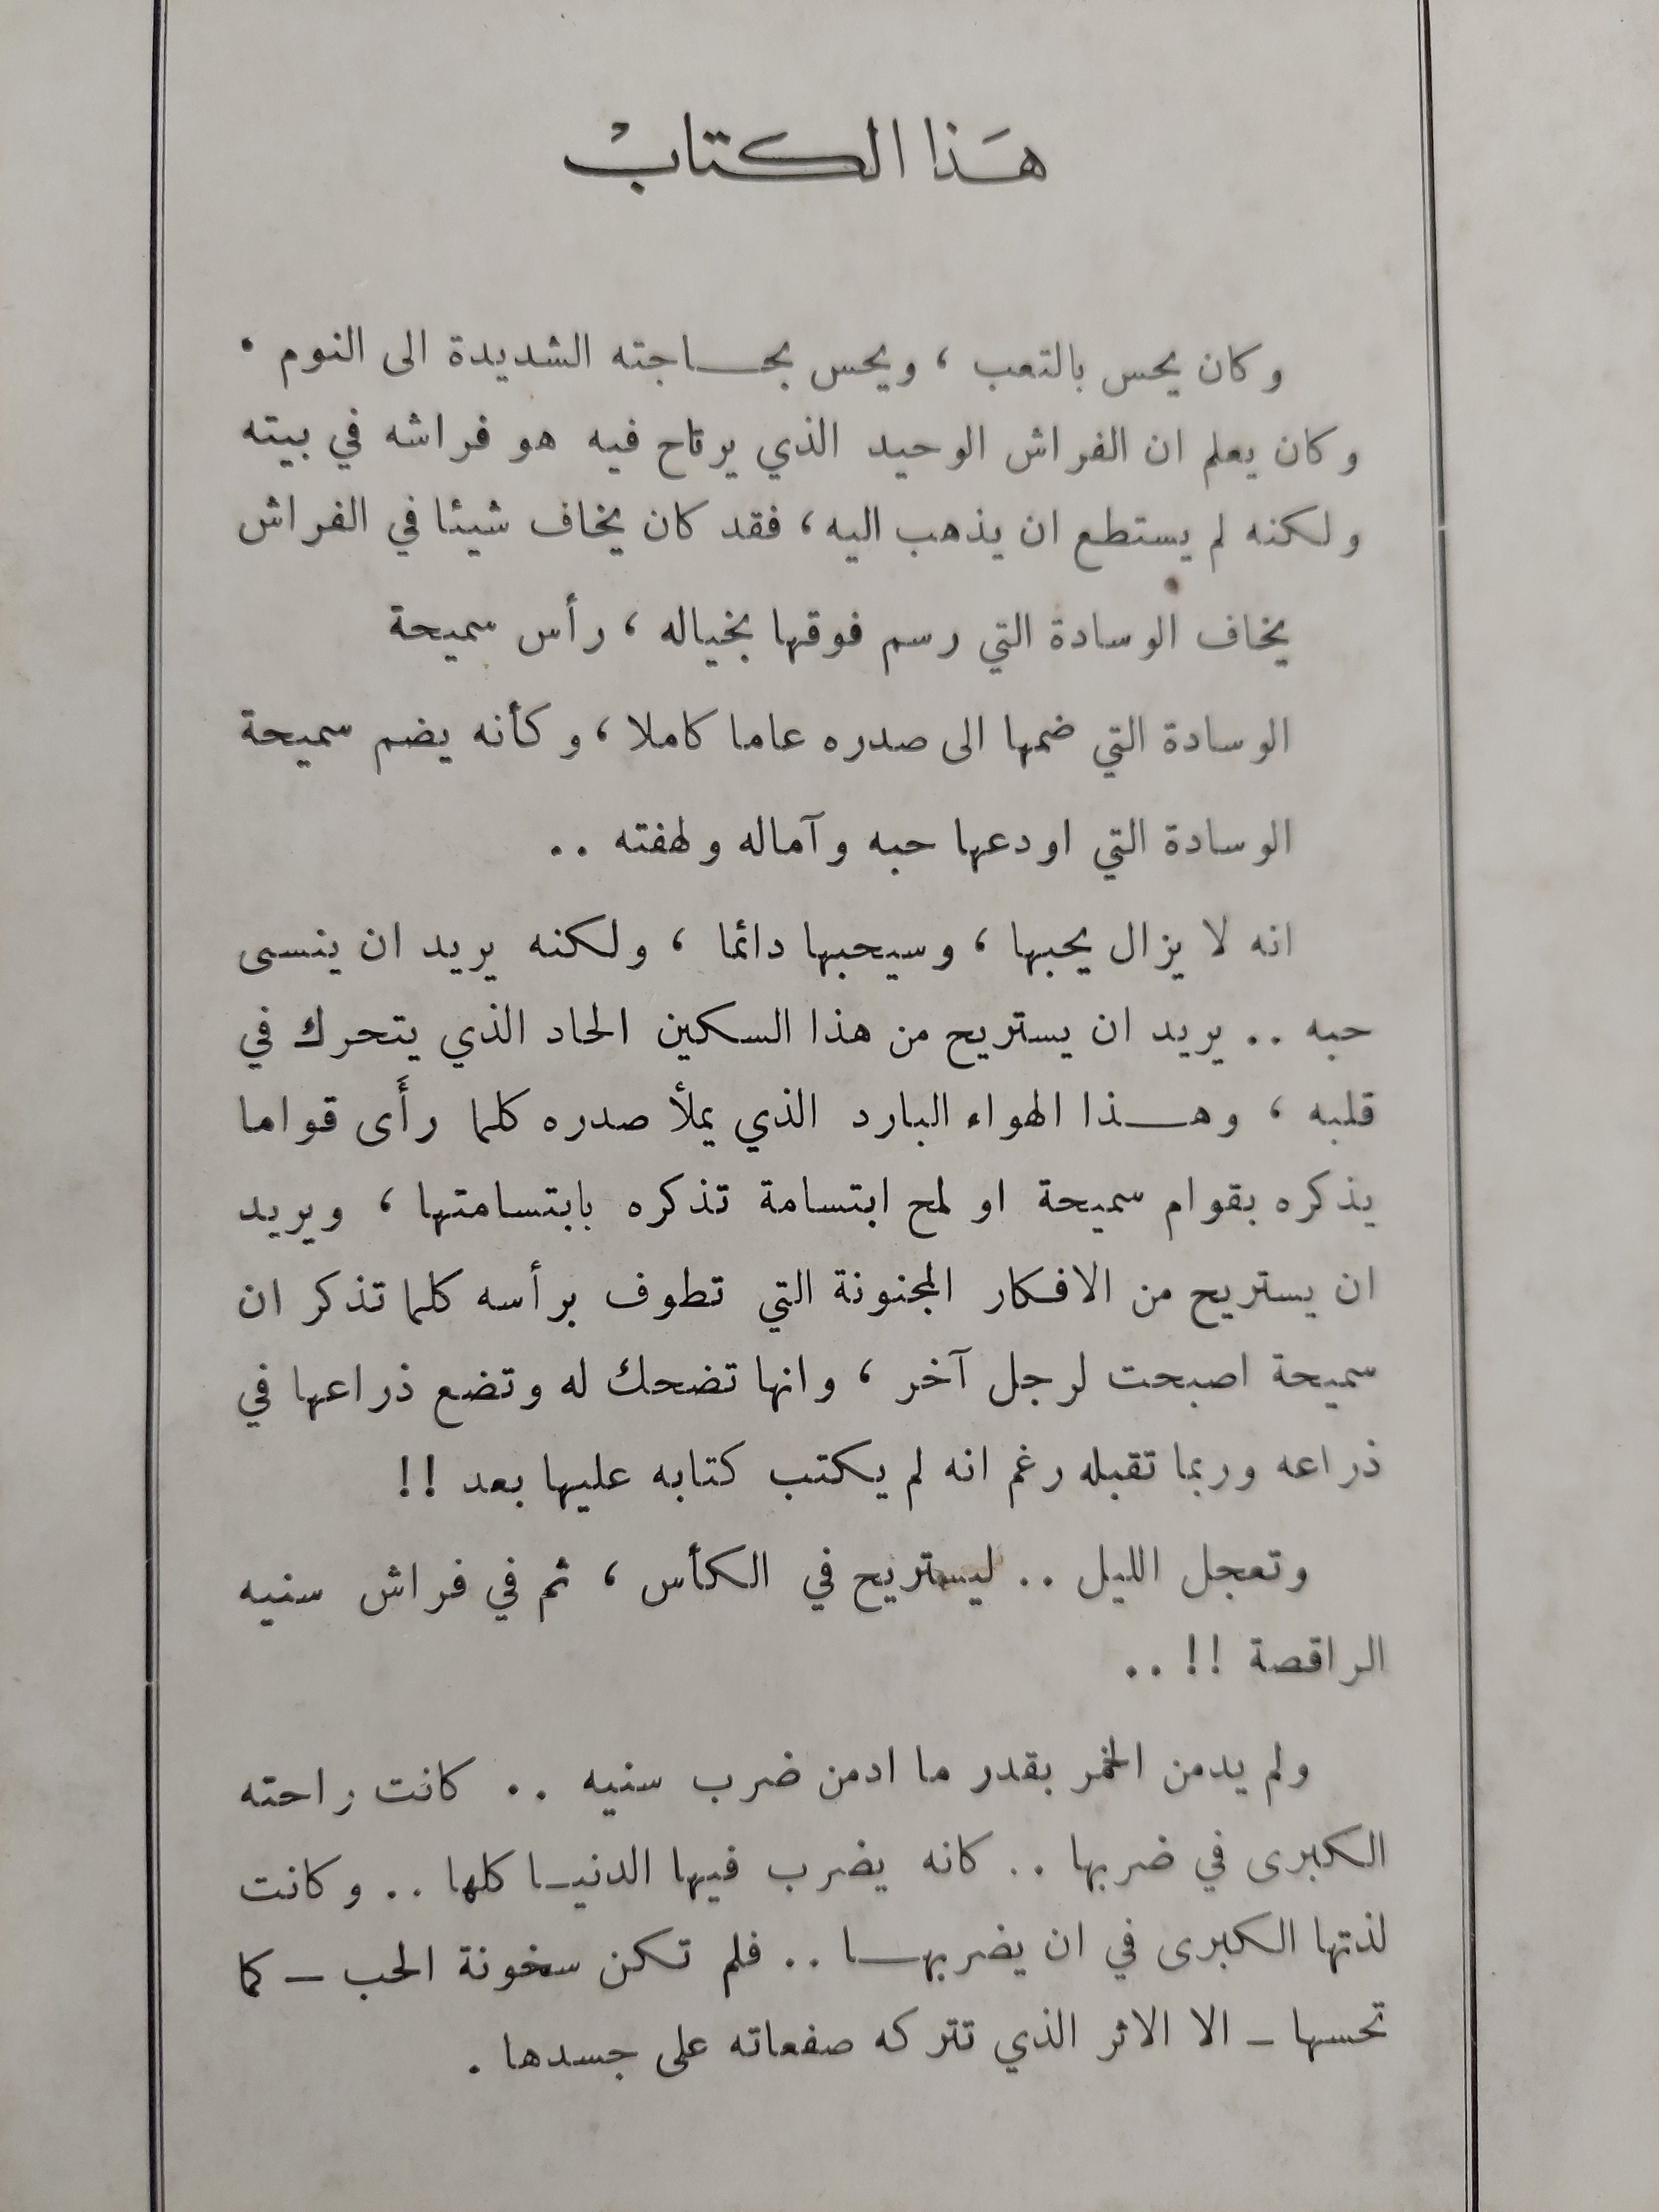 هَذا الكتابْ
وكان يحس بالتعب ، ويحس بحـــاجته الشديدة الى النوم .
وكان يعلم ان الفراش الوحيد الذي يرتاح فيه هو فراشه في بيته
ولكنه لم يستطع ان يذهب اليه ، فقد كان يخاف شيئا في الفراش
يخاف الوسادة التي رسم فوقها بخياله ، رأس سميحة
الوسادة التي ضمها الى صدره عاما كاملا ، وكأنه يضم سميحة
الوسادة التي اودعها حبه وآماله ولهفته ..
انه لا يزال يحبها ، وسيحبها دائما ، ولكنه يريد ان ينسى
حبه .. يريد ان يستريح من هذا السكين الحاد الذي يتحرك في
قلبه ، وهـــذا الهواء البارد الذي يملأ صدره كلما رأَى قواما
يذكره بقوام سميحة او لمح ابتسامة تذكره بابتسامتها ، ويريد
ان يستريح من الافكار المجنونة التي تطوف برأسه كلما تذكر ان
سميحة اصبحت لرجل آخر ، وانها تضحك له وتضع ذراعها في
ذراعه وربما تقبله رغم انه لم يكتب كتابه عليها بعد !!
وتعجل الليل .. ليستريح في الكأس ، ثم في فراش سنيه
الراقصة !! ..
ولم يدمن الخمر بقدر ما ادمن ضرب سنيه .. كانت راحته
الكبرى في ضربها .. كانه يضرب فيها الدنيـا كلها .. وكانت
لذتها الكبرى في ان يضربهـــا .. فلم تكن سخونة الحب ــ كما
تحسها ــ الا الاثر الذي تتركه صفعاته على جسدها .